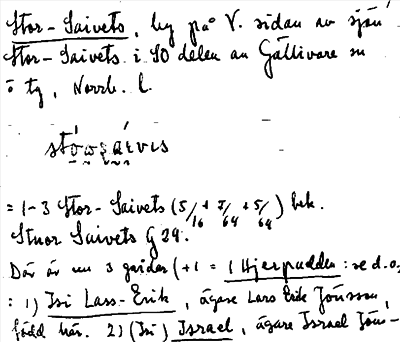 Stor-Saivets, by på V. sidan av sjön
Stor-Saivets i SO delen av Gällivare sn
o tg, Norrb. l.
stowsaivis
= 1-3 Stor-Saivets (5/16 + 5/64 + 5/64) bek.
Stuor Saivets G 29.
Där är nu 3 gårdar (+1 = 1 Hjerpudden : se d.o.)
: 1) Isi Lass-Erik, ägare Lars Erik Jönsson,
född här. 2) (Isi) Israel, ägare Israel Jöns-